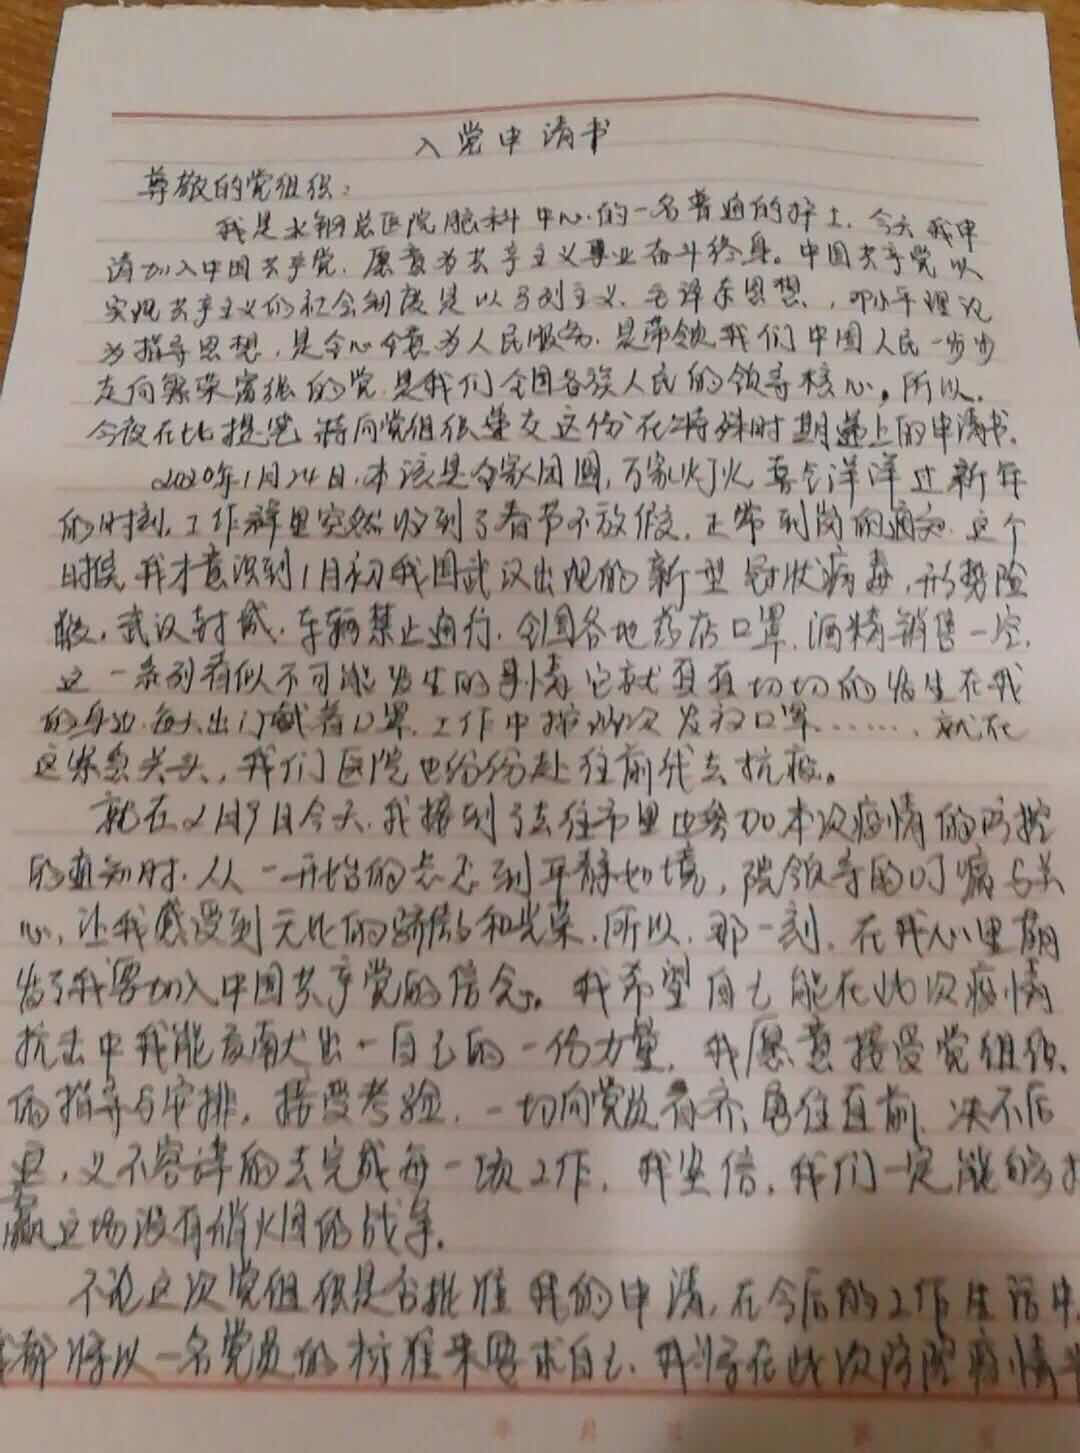 入党申请书
尊敬的党组织：
我是水钢总医院脑科中心的一名普通的护士。今天我申
请加入中国共产党，愿意为共产主义事业奋斗终身。中国共产党以
实现共产主义的社会制度是以马列主义、毛泽东思想，邓小平理论
为指导思想，是全心全意为人民服务，是带领我们中国人民一步步
走向繁荣富强的党，是我们全国各族人民的领导核心。所以，
今夜在此提笔，将向党组织递交这份在特殊时期递上的申请书。
2020年1月24日，本该是全家团圆，万家灯火喜气洋洋过新年
的时刻，工作群里突然收到了春节不放假，正常到岗的通知，这个
时候我才意识到1月初我国武汉出现的新型冠状病毒，形势险
峻，武汉封城，车辆禁止通行，全国各地药店口罩、酒精销售一空，
这一系列看似不可能发生的事情它就真真切切的发生在我
的身边，每天出门戴着口罩，工作中按班次发放口罩……，就在
这紧急关头，我们医院也纷纷赴往前线去抗疫。
就在2月9日今天，我接到了去往市里边参加本次疫情的防控
的通知时，从一开始的忐忑到平静如镜，院领导的叮嘱与关
心，让我感受到无比的骄傲和光荣，所以，那一刻，在我心里萌
发了我要加入中国共产党的信念。我希望自己能在此次疫情
抗击中我能贡献出一自己的一份力量，我愿意接受党组织
的指导与安排，接受考验，一切向党员看齐，勇往直前、决不后
退，义不容辞的去完成每一项工作，我坚信，我们一定能够打
赢这场没有硝火团的战争。
不论这次党组织是否批准我的申请，在今后的工作生活中，
我都将以一名党员的标准来要求自己，我将在此次防控疫情